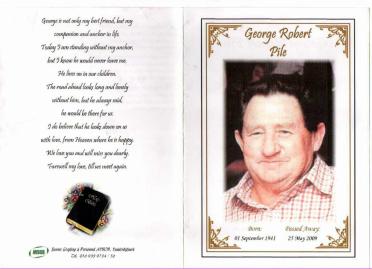 George is not only my best friend, but my
companion and anchor in life.
Today I am standing without my anchor,
but I know he would never leave me.
He lives on in our children.
The road ahead looks long and lonely
without him, but he always said,
he would be there for us.
I do believe that he looks down on us
with love, from Heaven where he is happy.
We love you and will miss you dearly.
Farewell my love, till we meet again.
HOLY
BIBLE
AVBOB
George Robert
Pile
Born:
Passed Away:
01 September 1941
25 May 2009